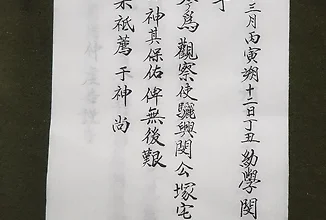 三月丙寅朔十二日丁丑幼學閔
爲觀察使驪興閔公塚宅
神其保佑俾無後艱
祗薦于神尚